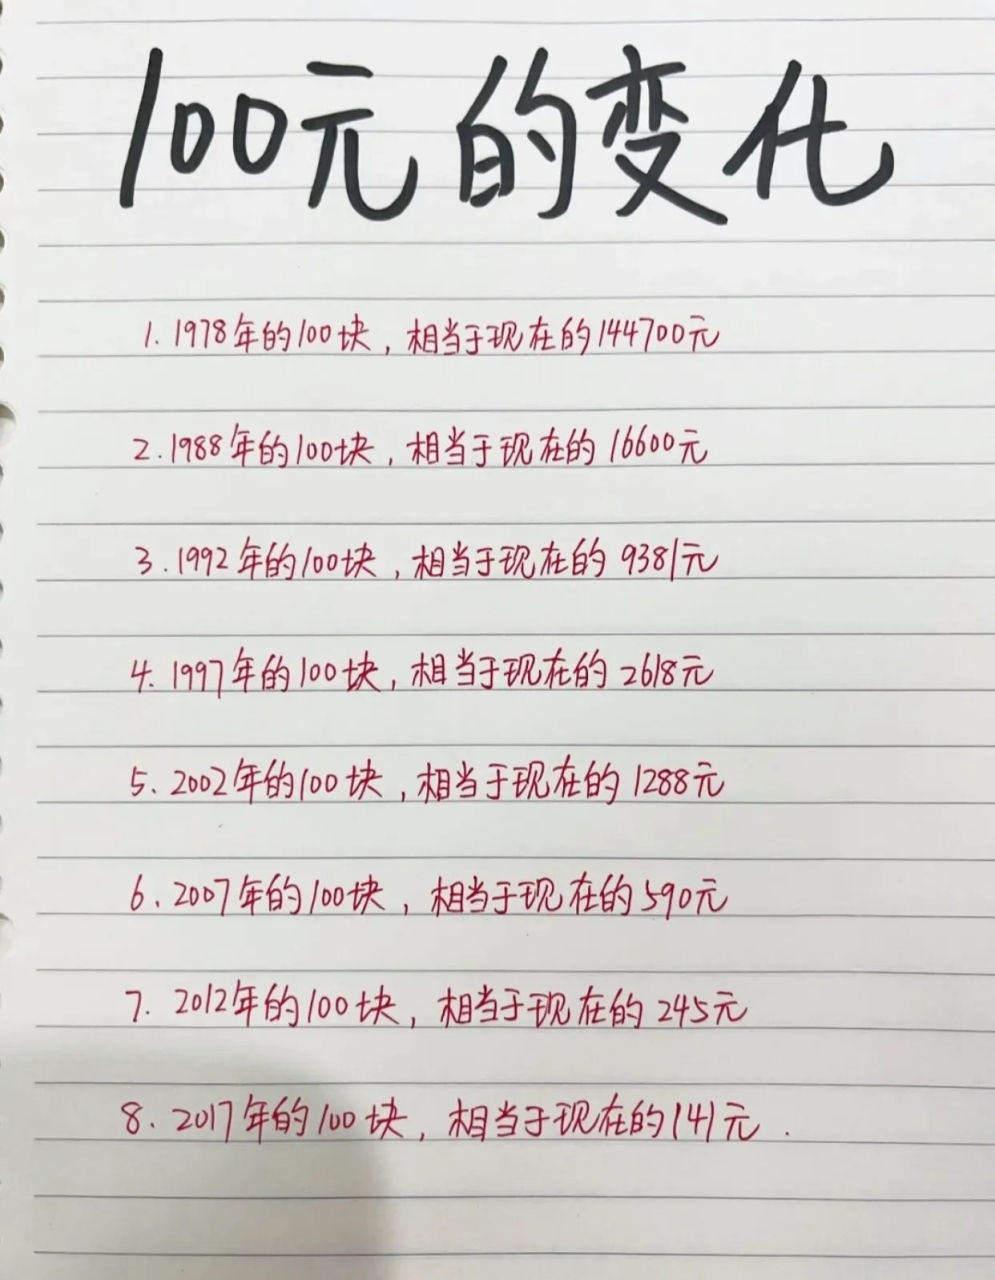 100元的变化
1. 1978年的100块，相当于现在的144700元
2. 1988年的100块，相当于现在的 16600元
3. 1992年的100块，相当于现在的 9381元
4. 1997年的100块，相当于现在的 2618元
5、2002年的100块，相当于现在的 1288元
6、2007年的100块，相当于现在的590元
7. 2012年的100块，相当于现在的 245元
8、2017年的100块，相当于现在的141元.